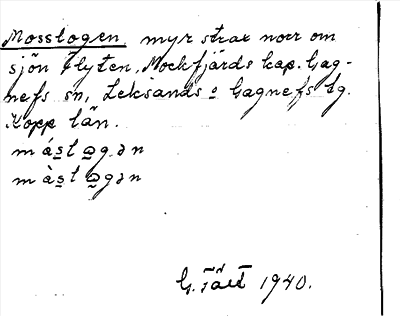 Mosslogen myr strax norr om
sjön Flyten, Mockfjärds kap. Gag-
nefs sn, Leksands o Gagnefs tg.
Kopp län.
G. Fält 1940.